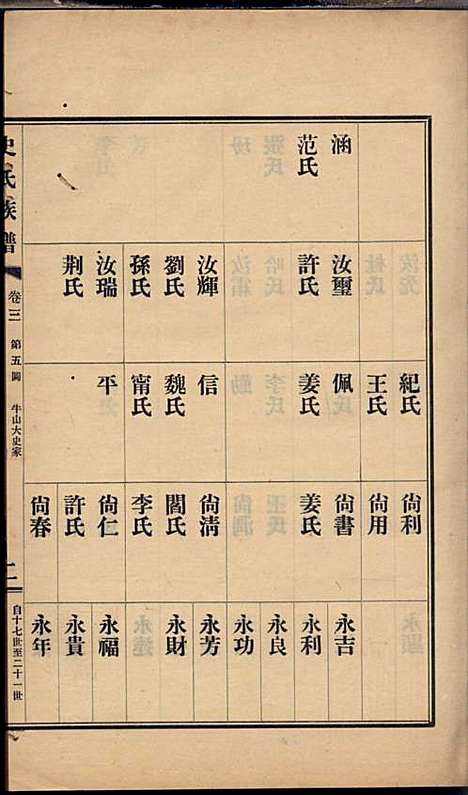 涵
范氏
汝璽
許氏
汝輝
劉氏
孫氏
汝瑞
荆氏
紀氏
王氏
佩
姜氏
信
魏氏
甯氏
平
尙利
尙用
尙書
姜氏
尙淸
閻氏
李氏
尙仁
許氏
尙春
永吉
永利
永良
永功
永芳
永財
永福
永貴
永年
史氏族譜
卷三
第五圖
牛山大史家
自十七世至二十一世